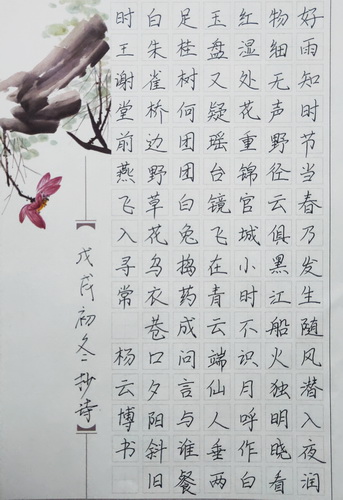 好雨知时节当春乃发生随风潜入夜润
物细无声野径云俱黑江船火独明晓看
红湿处花重锦官城小时不识月呼作白
玉盘又疑瑶台镜飞在青云端仙人垂两
足桂树何团团白兔捣药成问言与谁餐
白朱雀桥边野草花乌衣巷口夕阳斜旧
时王谢堂前燕飞入寻常 杨云博书
【戊戌初冬抄诗】